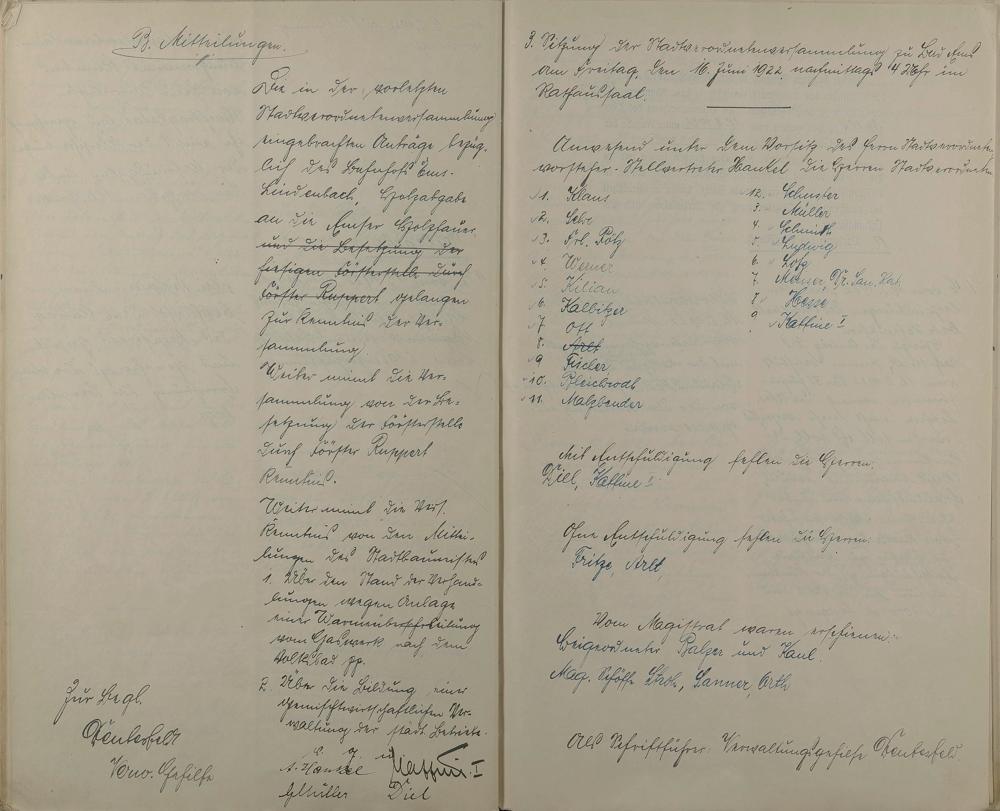 B. Mitteilungen.
Die in der vorletzten
Stadtverordnetenversammlung
eingebrachten Anträge bezüg-
lich des Bahnhofs Ems-
Lindenbach, Holzabgabe
an die Emser Holzhauer
und die Besetzung der
hiesigen Försterstelle durch
Förster Ruppert gelangen
zur Kenntnis der Ver-
sammlung.
Weiter nimmt die Ver-
sammlung von der Be-
setzung der Försterstelle
durch Förster Ruppert
Kenntnis.
Weiter nimmt die Vers.
Kenntnis von den Mittei-
lungen des Stadtbaumeisters
1. Über den Stand der Verhand-
lungen wegen Anlage
einer
vom Gaswerk nach dem
Volksbad pp.
2. Über die Bildung einer
gemischtwirtschaftlichen Ver-
waltung der städt. Betriebe.
Zur Begl.
Verw. Gehilfe
Hankel
Müller Diel
3. Sitzung der Stadtverordnetenversammlung zu Bad Ems
am Freitag, den 16. Juni 1922, nachmittags 4 Uhr im
Rathaussaal.
Anwesend unter dem Vorsitz des Herrn Stadtverordneten
vorsteher-Stellvertreter Hankel die Herren Stadtverordneten
1. Klaus
2.
3. Frl. Pötz
4. Werner
5. Kilian
6. Kalbitzer
7 Ott
8. Arlt
9
10.
11. Malzbender
12. Schuster
3. Müller
4. Schmidt
5. Ludwig
6. Lotz
7. Dr. San. Rat.
8. Hesse
9 I
Mit Entschuldigung fehlen die Herren:
Diel,
Ohne Entschuldigung fehlen die Herren:
Fritze, Arlt,
Vom Magistrat waren erschienen:
Beigeordneter Balzer und Kaul.
Mag. Schöffe Sanner, Orth
Als Schriftführer: Verwaltungsgehilfe